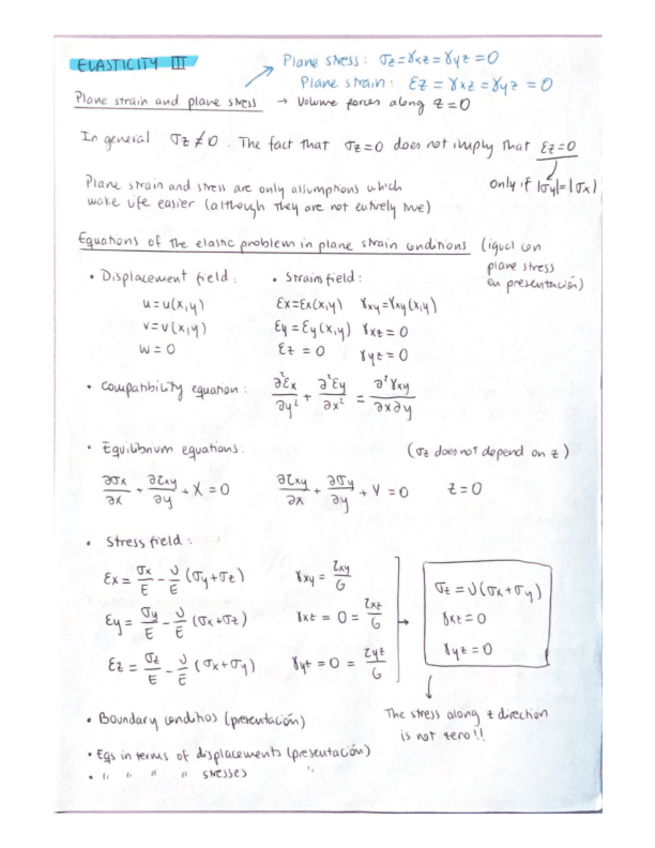 ELASTICITY III
Plane stress: σz=γxz=γyz=0
Plane strain: εz=γxz=γyz=0
Plane strain and plane stress → Volume forces along z=0
In general σz≠0. The fact that σz=0 does not imply that εz=0
only if |σy|=|σx|
Plane strain and stress are only assumptions which
make life easier (although they are not entirely true)
Equations of the elastic problem in plane strain conditions (igual con
plane stress
en presentación)
• Displacement field: • Strain field:
u=u(x,y) εx=εx(x,y) γxy=γxy(x,y)
v=v(x,y) εy=εy(x,y) γxz=0
w=0 εz=0 γyz=0
• Compatibility equation: ∂²εx/∂y² + ∂²εy/∂x² = ∂²γxy/∂x∂y
• Equilibrium equations: (σz does not depend on z)
∂σx/∂x + ∂τxy/∂y + X = 0 ∂τxy/∂x + ∂σy/∂y + Y = 0 Z=0
• Stress field:
εx = σx/E - ν/E (σy+σz) γxy = τxy/G
εy = σy/E - ν/E (σx+σz) γxz = 0 = τxz/G →
εz = σz/E - ν/E (σx+σy) γyz = 0 = τyz/G
σz = ν(σx+σy)
γxz = 0
γyz = 0
The stress along z direction
is not zero!!
• Boundary conditios (presentación)
• Eqs in terms of displacements (presentación)
• " " " " stresses) "